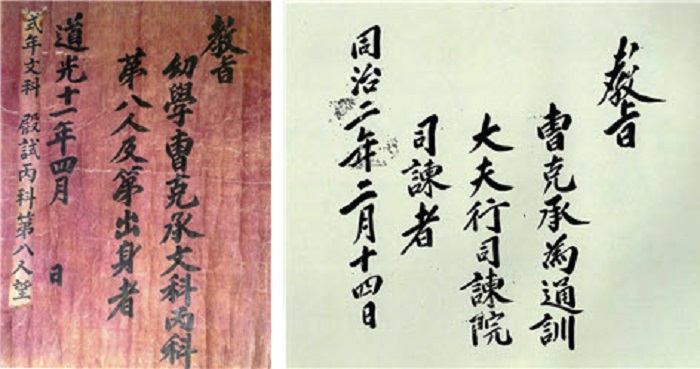 敎旨
幼學曺克承文科丙科
第八人及第出身者
道光十一年四月 日
式年文科 殿試丙科第八人望
敎旨
曺克承為通訓
大夫行司諫院
司諫者
同治二年二月十四日